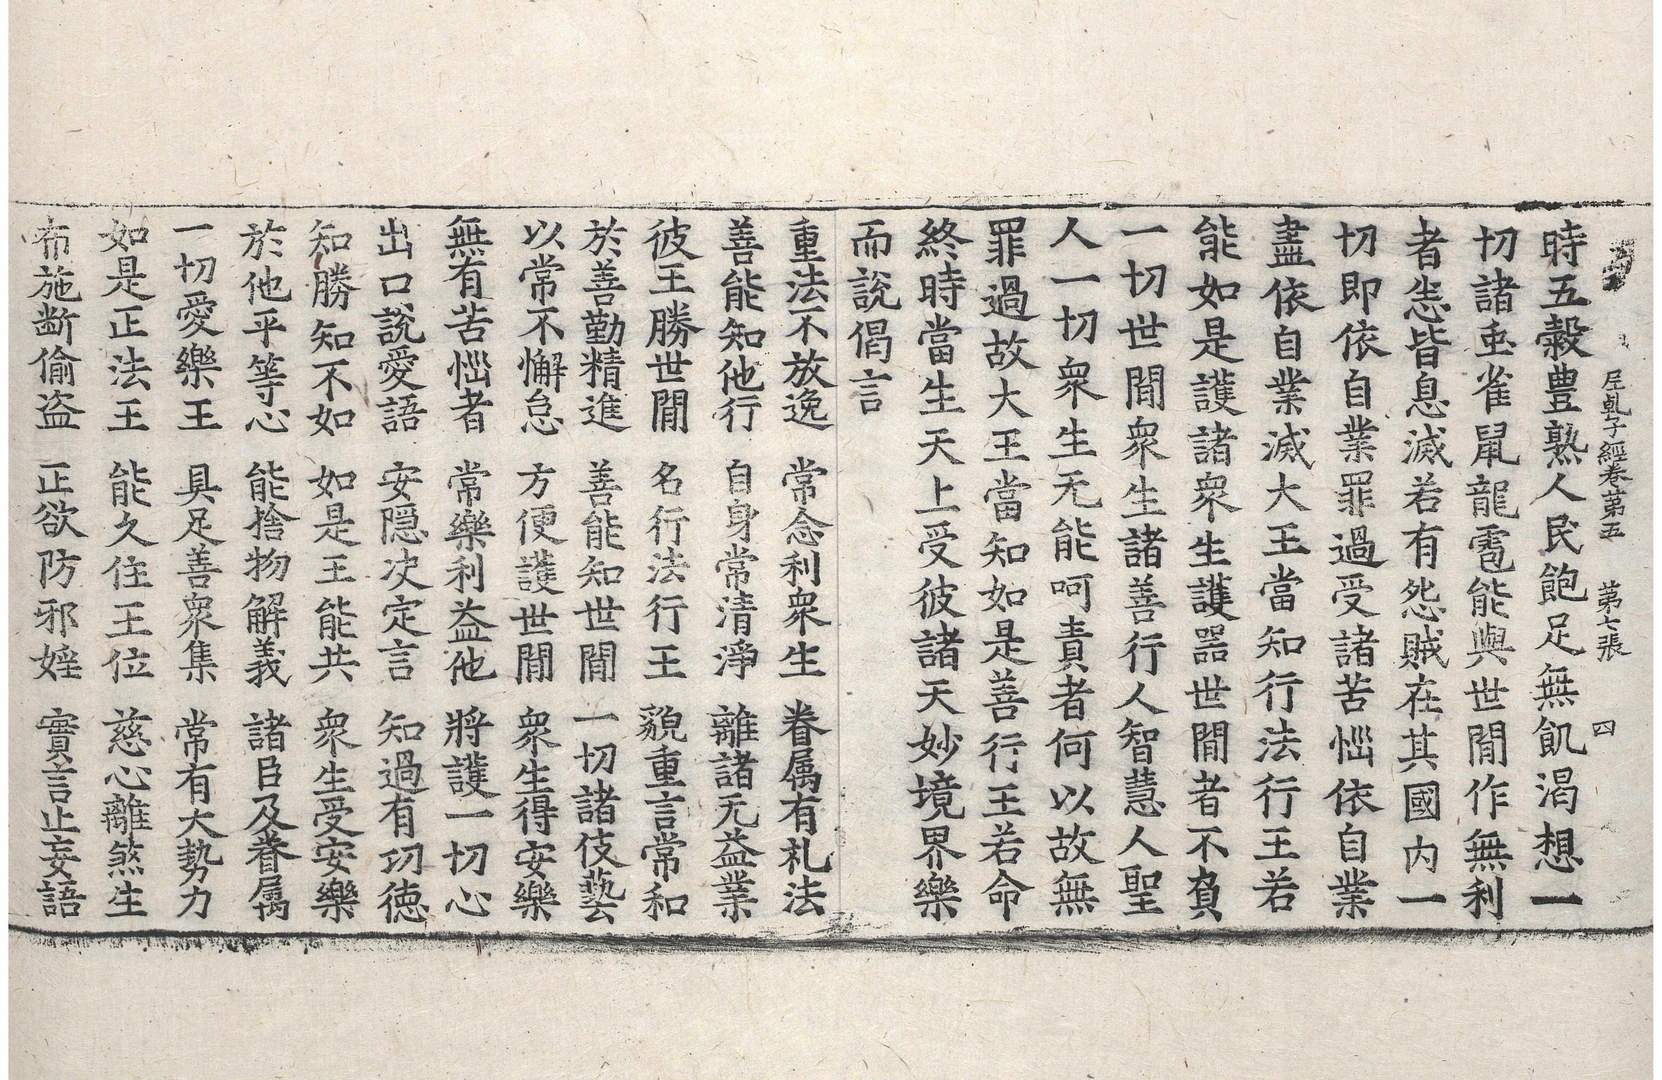 尼乹子經卷苐五 苐七張 四
時五糓豊熟人民飽足無飢渴想一
切諸䖝雀鼠龍雹能與世閒作無利
者悉皆息滅若有怨賊在其國内一
切即依自業罪過受諸苦惱依自業
盡依自業滅大王當知行法行王若
能如是護諸衆生護器世閒者不負
一切世閒衆生諸善行人智慧人聖
人一切衆生无能呵責者何以故無
罪過故大王當知如是善行王若命
終時當生天上受彼諸天妙境界樂
而說偈言
重法不放逸 常念利衆生 眷属有礼法
善能知他行 自身常清淨 離諸无益業
彼王勝世閒 名行法行王 貌重言常和
於善勤精進 善能知世閒 一切諸伎藝
以常不懈怠 方便護世閒 衆生得安樂
無有苦惱者 常樂利益他 將護一切心
出口說愛語 安隠决定言 知過有功德
知勝知不如 如是王能共 衆生受安樂
於他平等心 能捨物解義 諸臣及眷属
一切愛樂王 具足善衆集 常有大勢力
如是正法王 能久住王位 慈心離煞生
布施斷偷盗 正欲防邪婬 實言止妄語